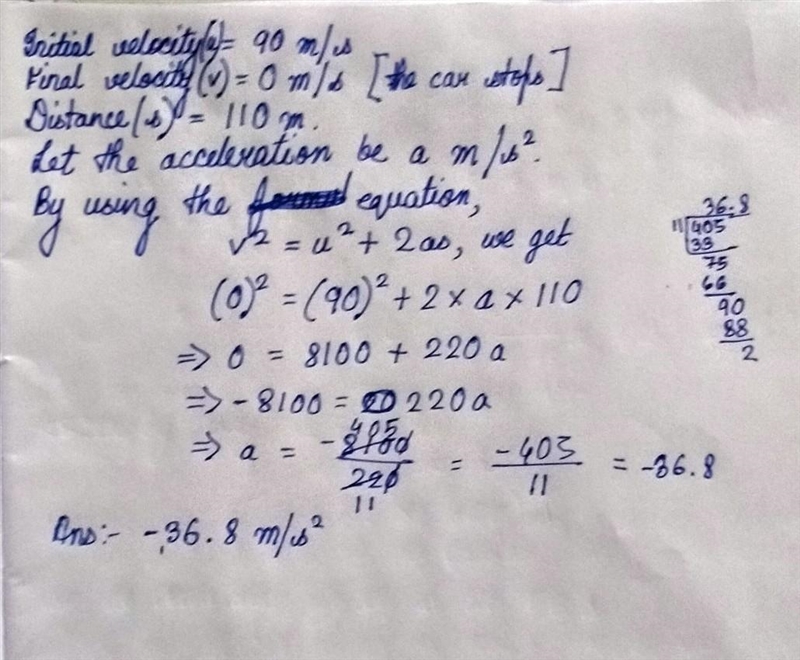 Initial velocity(u)= 90 m/s
Final velocity(v) = 0 m/s [the car stops]
Distance(s) = 110 m.
Let the acceleration be a m/s².
By using the equation,
v² = u² + 2as, we get
(0)² = (90)² + 2 × a × 110
⇒ 0 = 8100 + 220 a
⇒ -8100 = 220a
⇒ a = -8100/220 = -405/11 = -36.8
405
11
Ans:- -36.8 m/s²
36.8
11 405
33
75
66
90
88
2